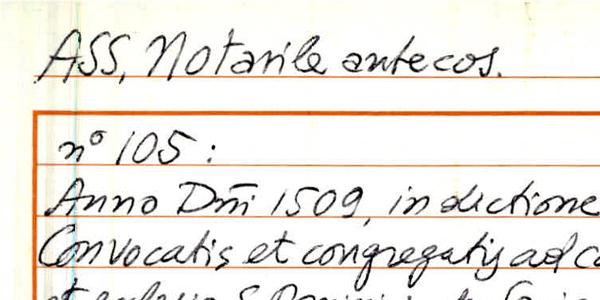 ASS, Notarile antecos.
n° 105:
Anno Dm̄i 1509, indictione
Convocatis et congregatis ad
et S. Dominici